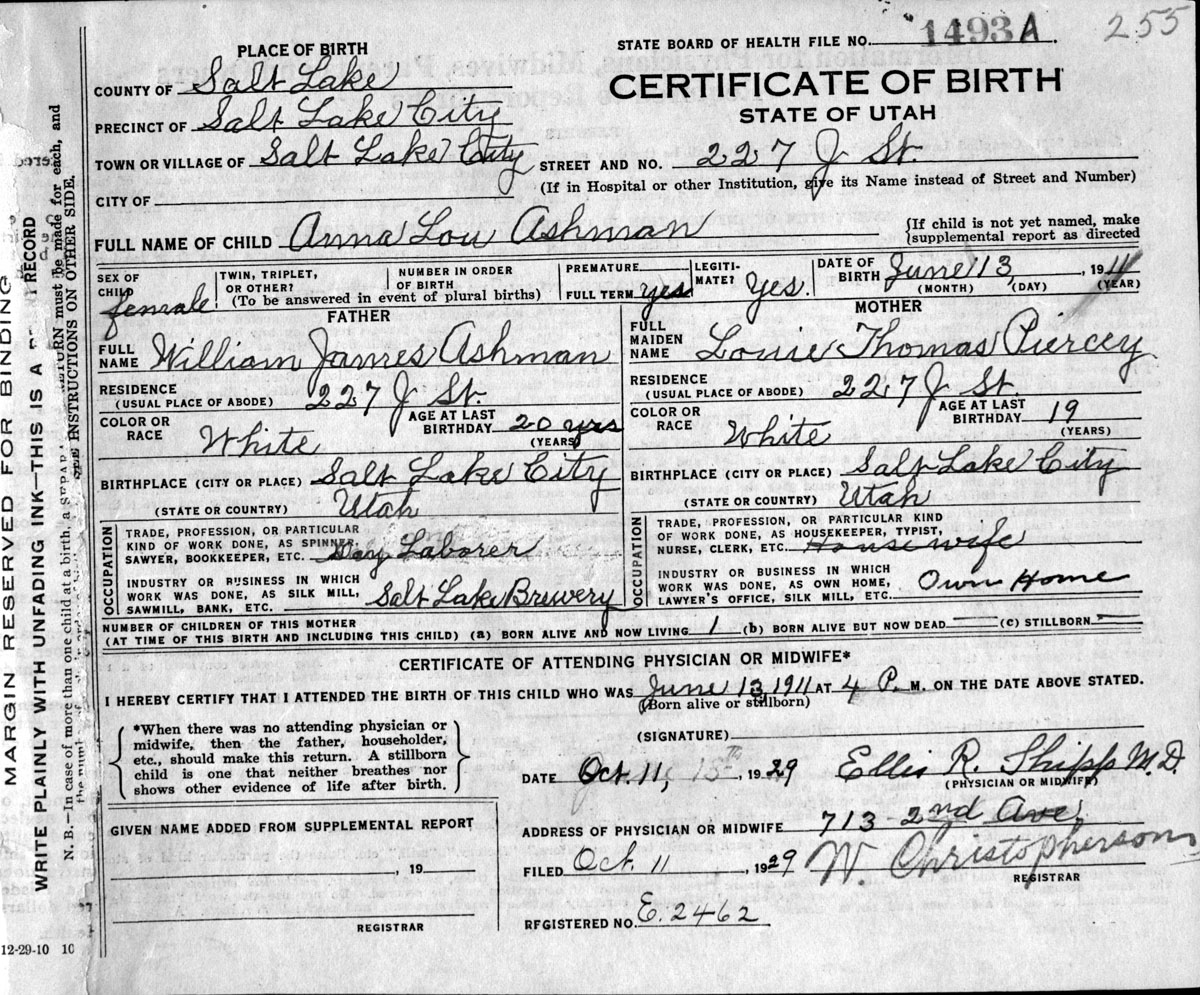 1493A 255
PLACE OF BIRTH
STATE BOARD OF HEALTH FILE NO.
COUNTY OF Salt Lake
CERTIFICATE OF BIRTH
PRECINCT OF Salt Lake City
STATE OF UTAH
TOWN OR VILLAGE OF Salt Lake City STREET AND NO. 227 J St.
(If in Hospital or other Institution, give its Name instead of Street and Number)
CITY OF
FULL NAME OF CHILD Anna Lou Ashman
{If child is not yet named, make
{supplemental report as directed
SEX OF CHILD female
TWIN, TRIPLET, OR OTHER?
NUMBER IN ORDER OF BIRTH
(To be answered in event of plural births)
PREMATURE
FULL TERM yes
LEGITIMATE? Yes.
DATE OF BIRTH June 13, 1911
(MONTH) (DAY) (YEAR)
FATHER
FULL NAME William James Ashman
RESIDENCE (USUAL PLACE OF ABODE) 227 J St.
COLOR OR RACE White
AGE AT LAST BIRTHDAY 20 yrs
(YEARS)
BIRTHPLACE (CITY OR PLACE) Salt Lake City
(STATE OR COUNTRY) Utah
OCCUPATION
TRADE, PROFESSION, OR PARTICULAR
KIND OF WORK DONE, AS SPINNER,
SAWYER, BOOKKEEPER, ETC. Day Laborer
INDUSTRY OR BUSINESS IN WHICH
WORK WAS DONE, AS SILK MILL,
SAWMILL, BANK, ETC. Salt Lake Brewery
MOTHER
FULL MAIDEN NAME Louie Thomas Piercey
RESIDENCE (USUAL PLACE OF ABODE) 227 J St.
COLOR OR RACE White
AGE AT LAST BIRTHDAY 19
(YEARS)
BIRTHPLACE (CITY OR PLACE) Salt Lake City
(STATE OR COUNTRY) Utah
OCCUPATION
TRADE, PROFESSION, OR PARTICULAR KIND
OF WORK DONE, AS HOUSEKEEPER, TYPIST,
NURSE, CLERK, ETC. Housewife
INDUSTRY OR BUSINESS IN WHICH
WORK WAS DONE, AS OWN HOME,
LAWYER'S OFFICE, SILK MILL, ETC. Own Home
NUMBER OF CHILDREN OF THIS MOTHER
(AT TIME OF THIS BIRTH AND INCLUDING THIS CHILD) (a) BORN ALIVE AND NOW LIVING 1 (b) BORN ALIVE BUT NOW DEAD — (c) STILLBORN —
CERTIFICATE OF ATTENDING PHYSICIAN OR MIDWIFE*
I HEREBY CERTIFY THAT I ATTENDED THE BIRTH OF THIS CHILD WHO WAS June 13, 1911 AT 4 P. M. ON THE DATE ABOVE STATED.
(Born alive or stillborn)
*When there was no attending physician or
midwife, then the father, householder,
etc., should make this return. A stillborn
child is one that neither breathes nor
shows other evidence of life after birth.
(SIGNATURE)
DATE Oct. 11, 1929 Ellis R. Shipp M.D.
(PHYSICIAN OR MIDWIFE)
GIVEN NAME ADDED FROM SUPPLEMENTAL REPORT
, 19
REGISTRAR
ADDRESS OF PHYSICIAN OR MIDWIFE 713 - 2nd Ave.
FILED Oct. 11, 1929 W. Christopherson
REGISTRAR
REGISTERED NO. E. 2462
12-29-10 10
MARGIN RESERVED FOR BINDING
WRITE PLAINLY WITH UNFADING INK—THIS IS A RECORD
N. B.—In case of more than one child at a birth, a RETURN must be made for each, and
INSTRUCTIONS ON OTHER SIDE.